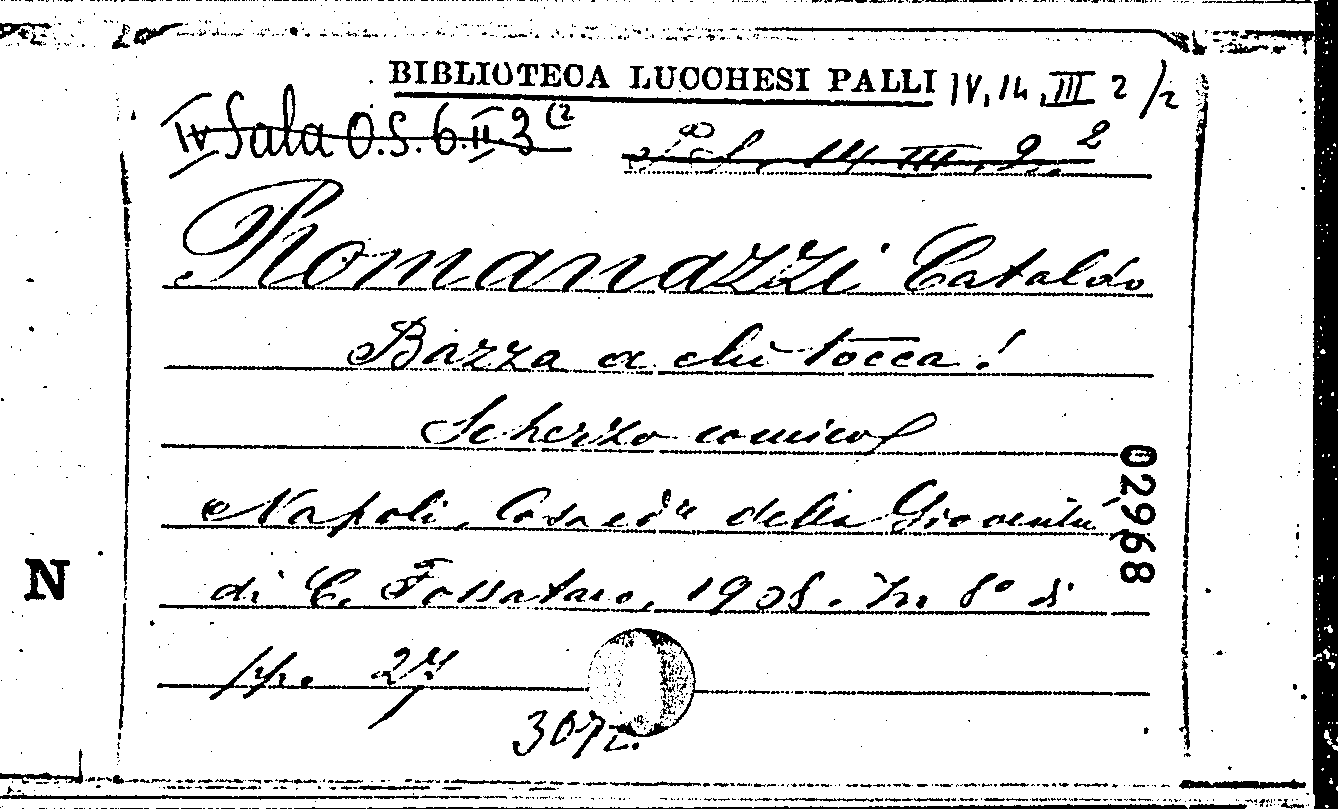 BIBLIOTECA LUCCHESI PALLI IV, 14, III 2 /2
IV Sala O.S. 6. II 3 (2
14 III. 2. 2
Romanazzi Cataldo
Bazza a chi tocca!
Scherzo comico
Napoli, Casa ed. della Gioventù
di C. Fossataro, 1908. In 8° di
pp. 27
02968
N